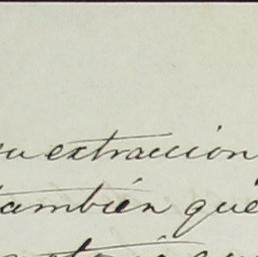 su extraccion
también que